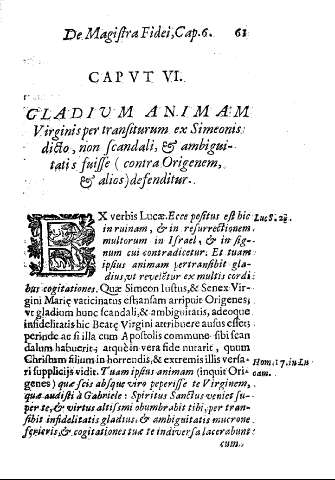 De Magistra Fidei, Cap. 6. 61
CAPVT VI.
GLADIVM ANIMAM
Virginis per transiturum ex Simeonis
dicto, non scandali, & ambigui-
tatis fuisse (contra Origenem,
& alios) defenditur.
EX verbis Lucæ. Ecce positus est hic
Luc. 2.
in ruinam, & in resurrectionem
multorum in Israel, & in sig-
num cui contradicetur: Et tuam
ipsius animam pertransibit gla-
dius, vt reveletur ex multis cordi
bus cogitationes. Quæ Simeon Iustus, & Senex Vir-
gini Mariæ vaticinatus est, ansam arripuit Origenes;
vt gladium hunc scandali, & ambiguitatis, adeoque
infidelitatis hic Beatę Virgini attribuere ausus esset;
perinde ac si illa cum Apostolis commune sibi scan
dalum habuerit; atque in vera fide nutarit, quum
Christum filium in horrendis, & extremis illis versa-
ri supplicijs vidit. Tuam ipsius animam (inquit Ori-
Hom. 17. in Lu
cam.
genes) quæ scis absque viro peperisse te Virginem,
quæ audisti à Gabriele: Spiritus Sanctus veniet su-
per te, & virtus altissimi obumbrabit tibi, per tran-
sibit infidelitatis gladius: & ambiguitatis mucrone
ferieris, & cogitationes tuæ te in diversa lacerabunt
cum